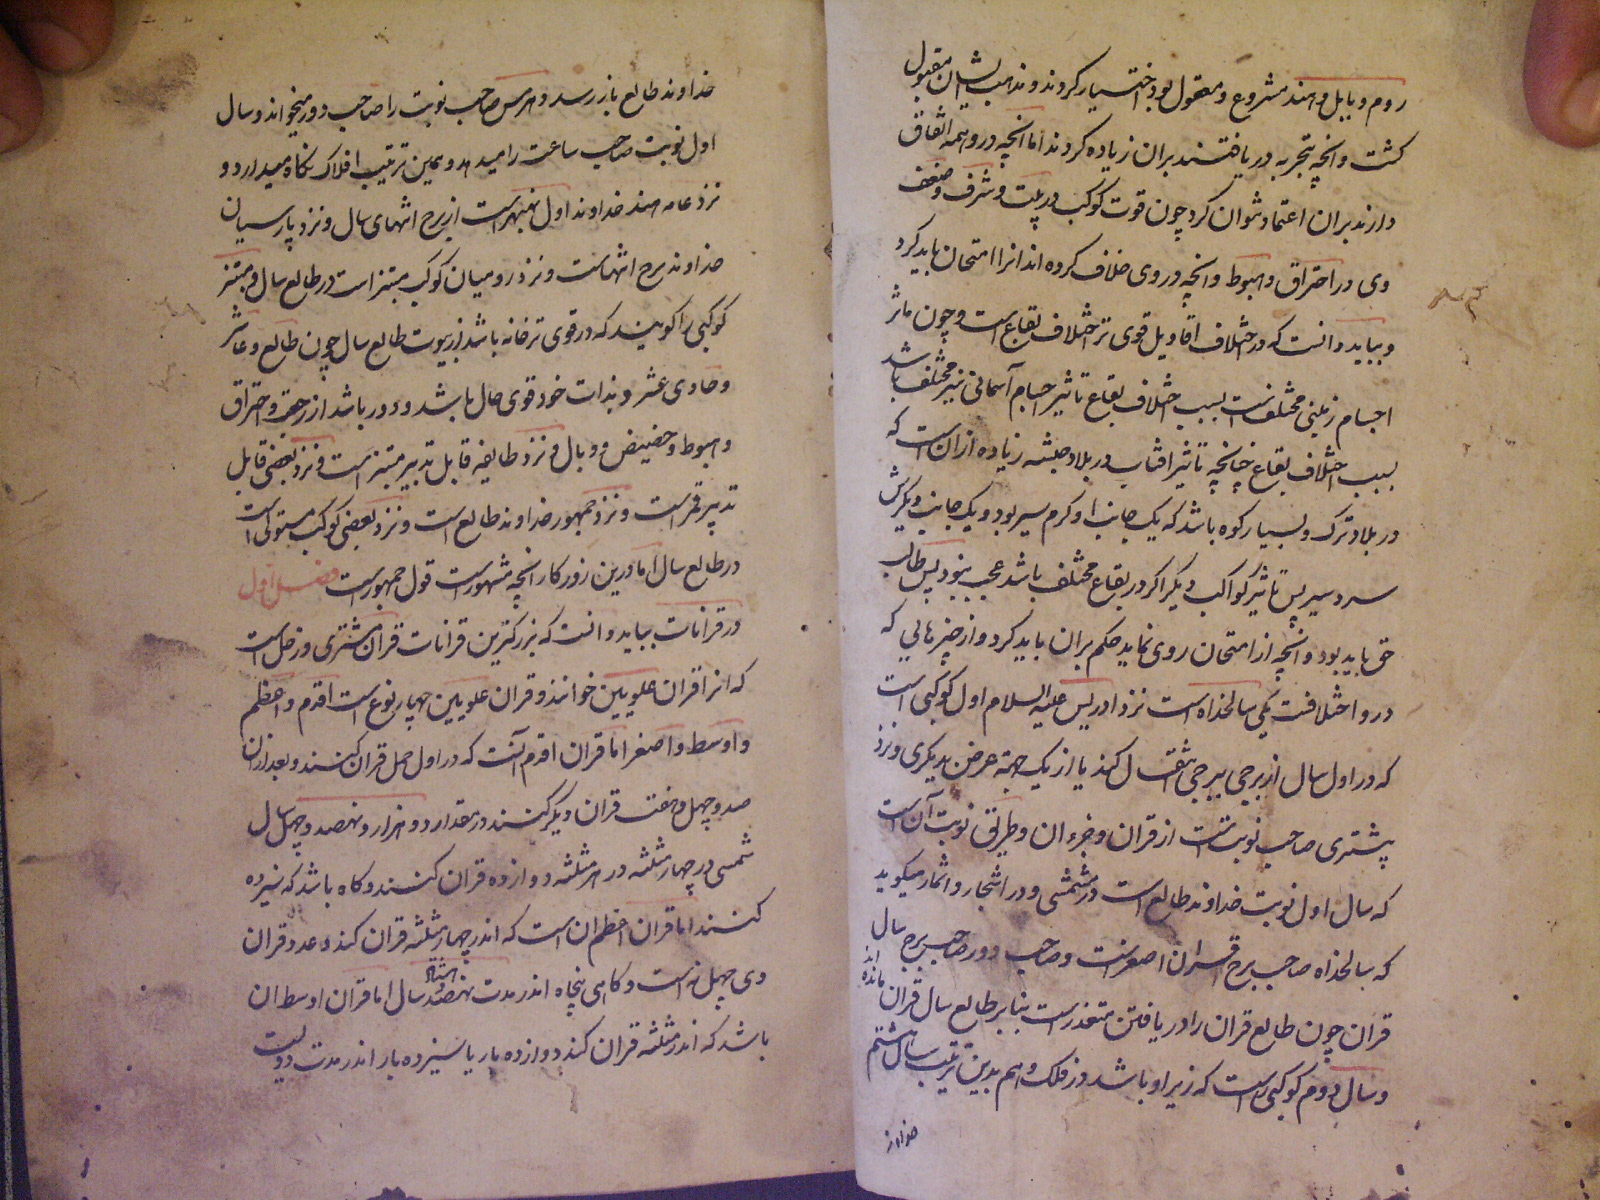 روم و بابل و هند مشروع و معقول بود اختیار کردند و مذهب ایشان مقبول
کشت و انچه بتجربه دریافتند بران زیاده کردند اما انچه درو همه اتفاق
دارند بران اعتماد توان کرد چون قوت کوکب در بیت و شرف و ضعف
وی در احتراق و هبوط و انچه در وی خلاف کرده اند انرا امتحان باید کرد
و بباید دانست که در اختلاف اقاویل قوی تر اختلاف بقاع است و چون ماثر
اجسام زمینی مختلف است بسبب اختلاف بقاع تاثیر اجسام آسمانی نیز مختلف باشد
بسبب اختلاف بقاع چنانچه تاثیر افتاب در بلاد حبشه زیاده ازان است که
در بلاد ترک و بسیار کوه باشد که یک جانب او کرم سیر بود و یک جانب دیکرش
سرد سیر پس تاثیر کواکب دیکر اکر در بقاع مختلف باشد عجب نبود پس طالب
حق باید بود و انچه از امتحان روی نماید حکم بران باید کرد و از چیزهایی که
درو اختلافست یکی سالخداه است نزد ادریس علیه السلام اول کوکبی است
که در اول سال از برجی ببرجی انتقال کند یا از یک جهة عرض بدیکری و نزد
بیشتری صاحب نوبتست از قران و جزء ان و طریق نوبت آن است
که سال اول نوبت خداوند طالع است در شمسی و در اشجار و اثمار میکوید
که سالخداه صاحب برج قران اصغرست و صاحب دور صاحب برج سال
قران چون طالع قران را دریافتن متعذرست بنابر طالع سال قران مانده اند
و سال دوم کوکبی راست که زیر او باشد در فلک و هم بدین ترتیب سال هشتم
خداوند
خداوند طالع باز رسد و هرمس صاحب نوبت را صاحب دور میخواند و سال
اول نوبت صاحب ساعت را میدهد و بهمین ترتیب افلاک نکاه میدارد و
نزد عامه هند خداوند اول نهبهر است از برج انتهای سال و نزد پارسیان
خداوند برج انتهاست و نزد رومیان کوکب مبتز است در طالع سال و مبتز
کوکبی را کویند که در قوی تر خانه باشد از بیوت طالع سال چون طالع و عاشر
و حادی عشر و بذات خود قوی حال باشد و دور باشد از رجعت و احتراق
و هبوط و حضیض و وبال و نزد طایفه قابل تدبیر مبتز است و نزد بعضی قابل
تدبیر قمر است و نزد جمهور خداوند طالع است و نزد بعضی کوکب مستولی است
در طالع سال اما درین روزکار انچه مشهورست قول جمهورست فصل اول
در قرانات بباید دانست که بزرکترین قرانات قران مشتری و زحل است
که انرا قران علویین خوانند و قران علویین چهار نوع است اقدم و اعظم
و اوسط و اصغر اما قران اقدم آنست که در اول حمل قران کنند و بعد ازان
صد و چهل و هفت قران دیکر کنند در مقدار دو هزار و نهصد و چهل سال
شمسی در چهار مثلثه در هر مثلثه دوازده قران کنند و کاه باشد که سیزده
کنند اما قران اعظم ان است که اندر چهار مثلثه قران کند و عدد قران
وی چهل نه است و کاهی پنجاه اندر مدت نهصد و هشتاد سال اما قران اوسط ان
باشد که اندر مثلثه قران کند دوازده بار یا سیزده بار اندر مدت دویست